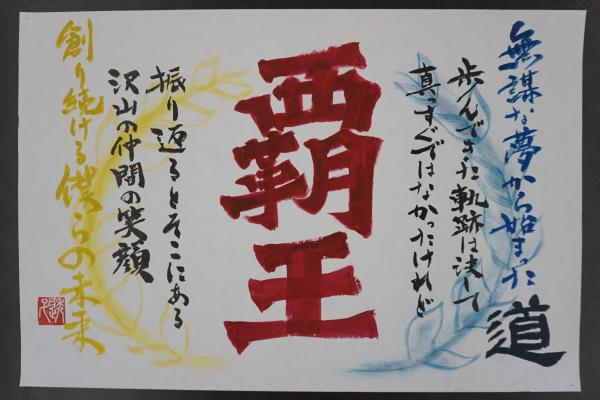 無謀な夢から始まった
道
歩んできた軌跡は決して
真っすぐではなかったけれど
覇王
振り返るとそこにある
沢山の仲間の笑顔
創り続ける僕らの未来